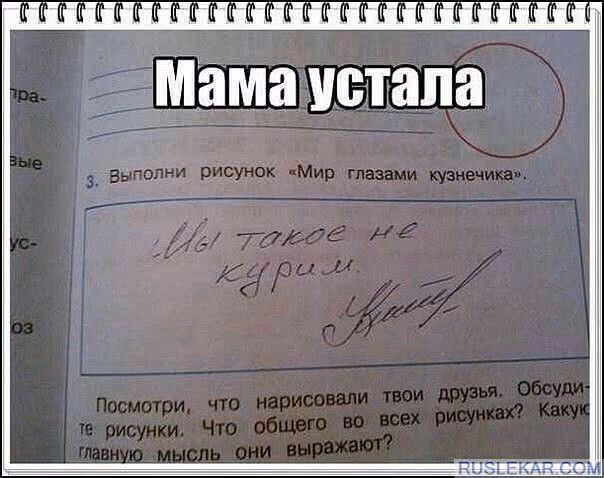 Мама устала
ра-
вые
3. Выполни рисунок «Мир глазами кузнечика».
ус-
Мы такое не
курим.
оз
Посмотри, что нарисовали твои друзья. Обсуди-
те рисунки. Что общего во всех рисунках? Какую
главную мысль они выражают?
RUSLEKAR.COM